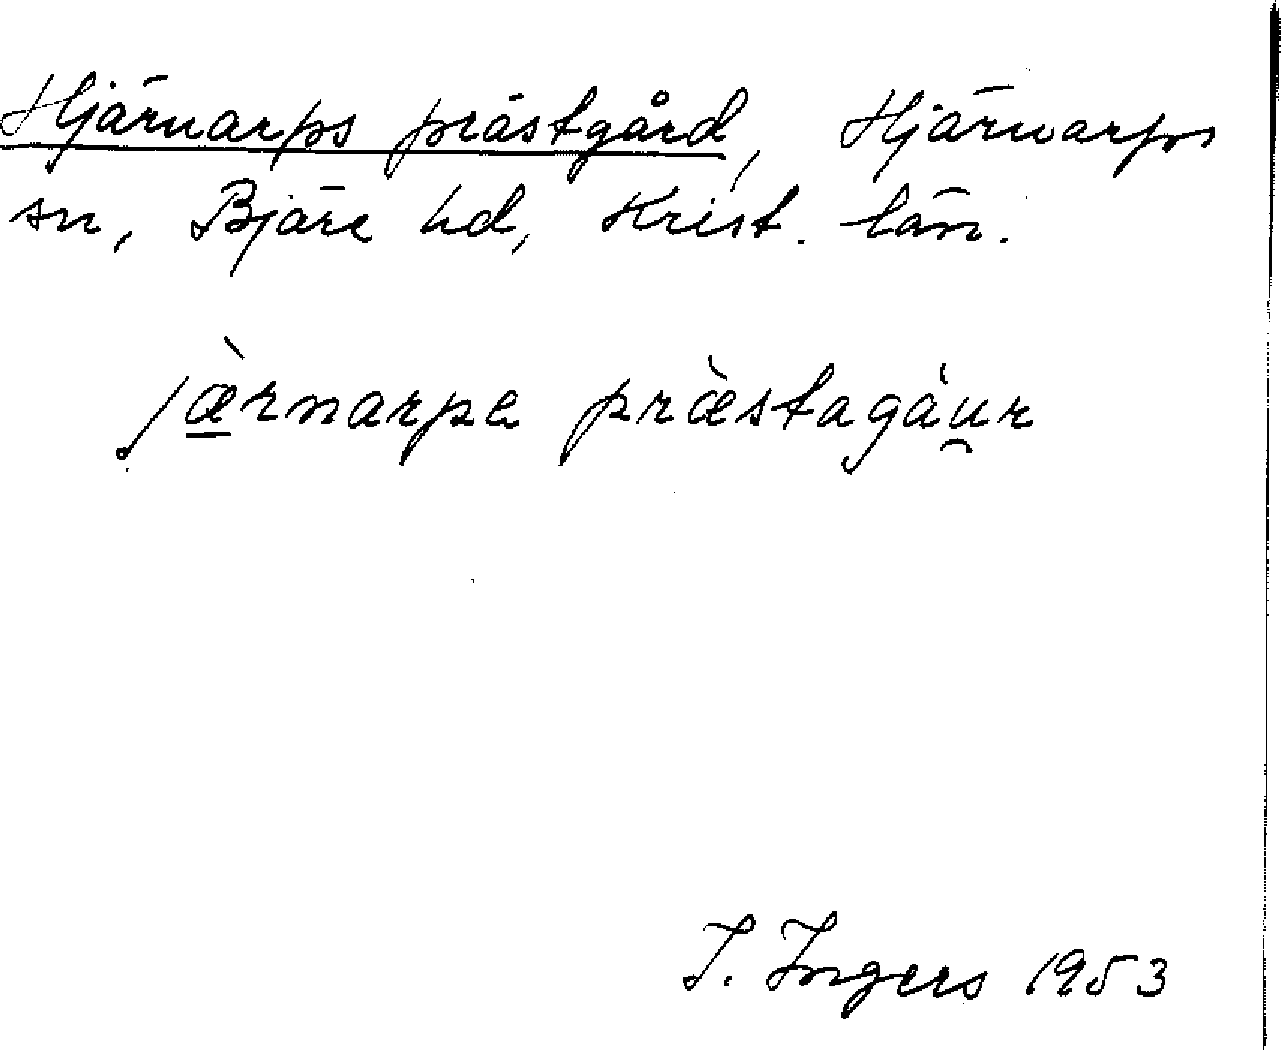 Hjärnarps prästgård, Hjärnarps
sn, Bjäre hd, Krist. län.
jæ̀rnarpa præ̀stagáu̯r
I. Ingers 1953